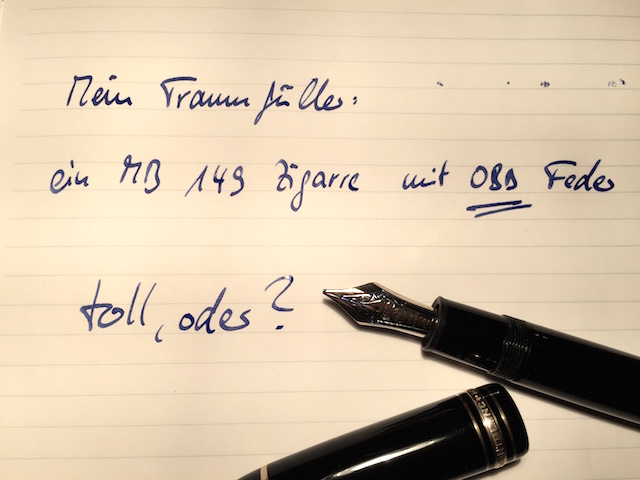 Mein Traumfüller:
ein MB 149 Zigarre mit OBB Feder
toll, oder?
MONTBLANC